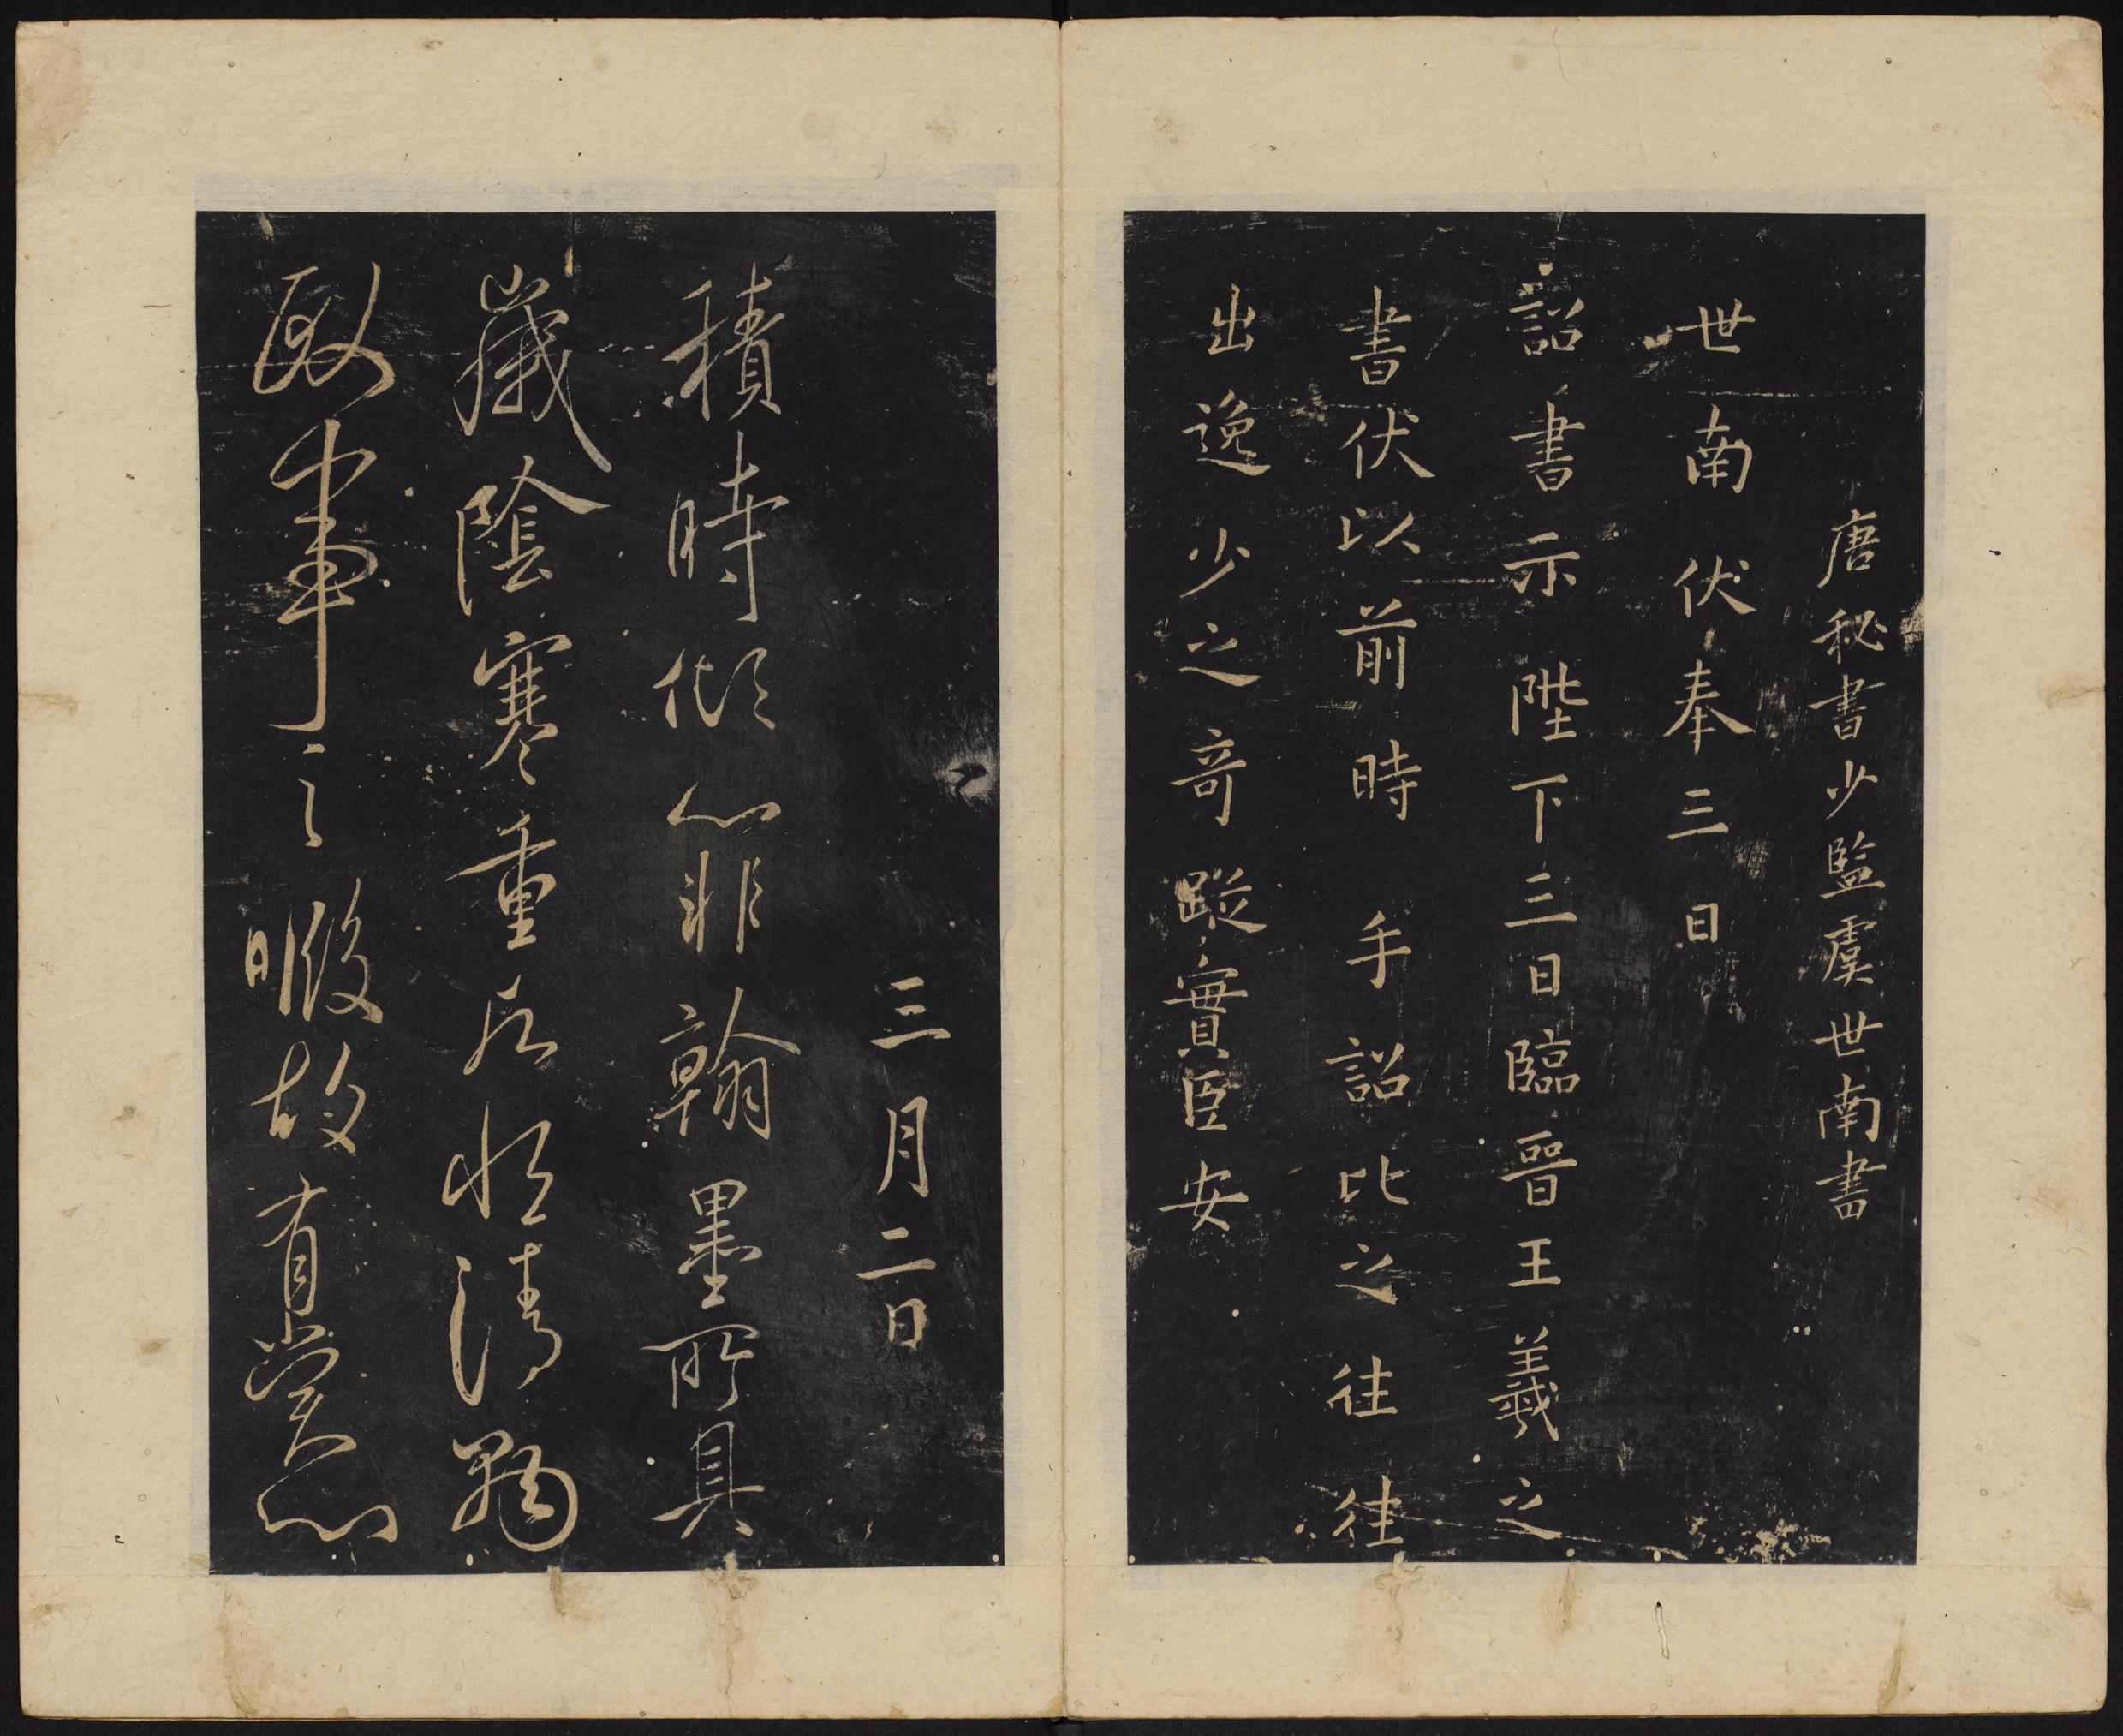 唐秘書少監虞世南書
世南伏奉三日
詔書示陛下三日臨晉王羲之
書伏以前時手詔比之往往
出逸少之奇蹤實臣安
三月二日
積時傾心非翰墨所具
歲陰寒重居恒清
政事之暇故有賞心